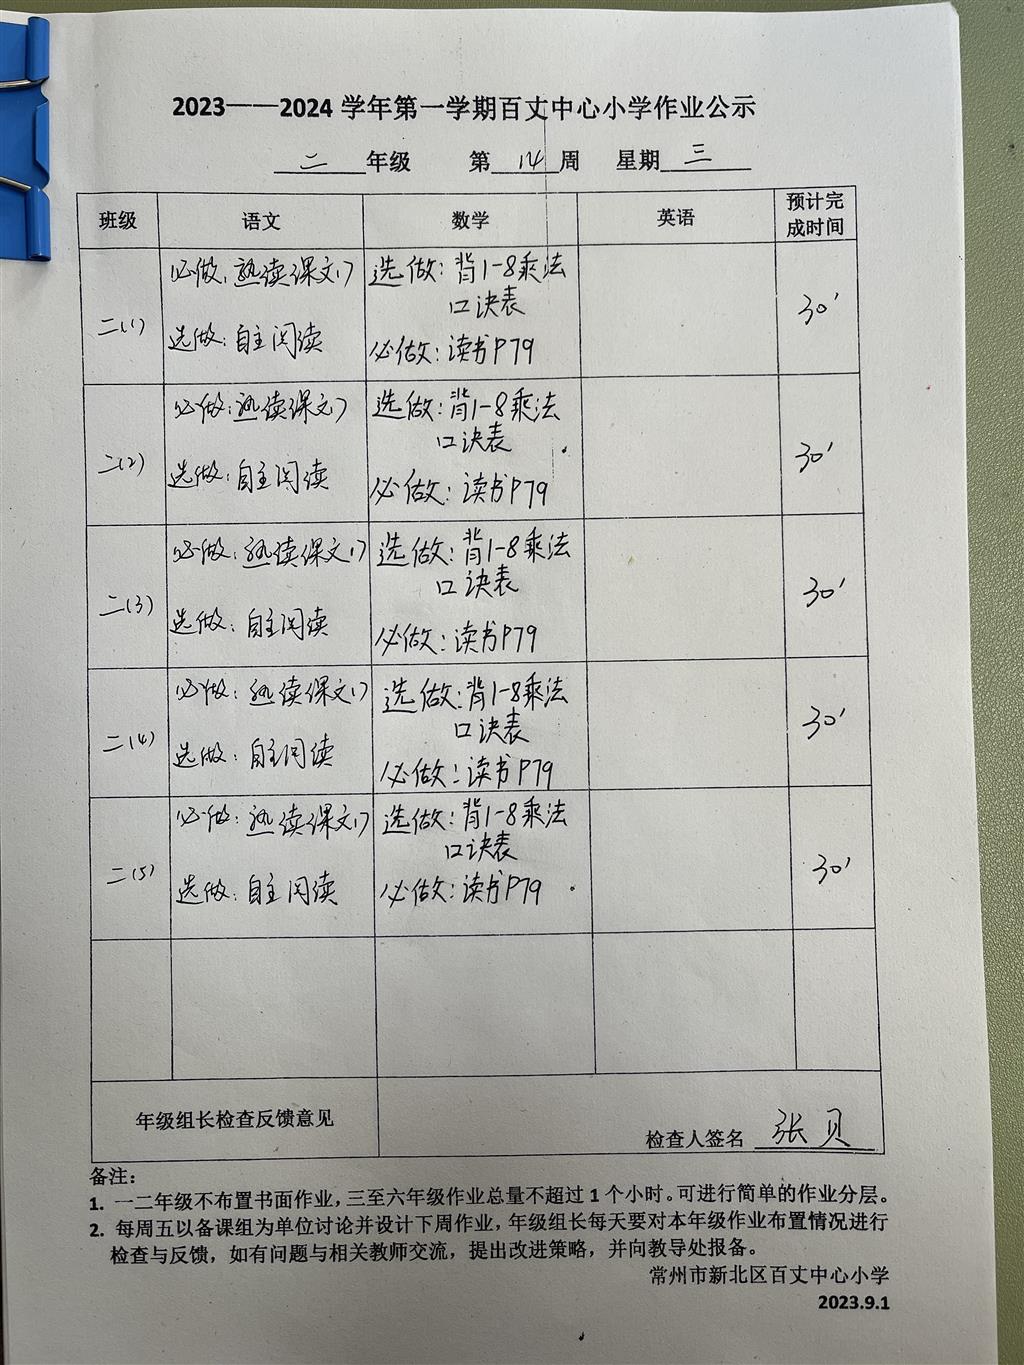 2023——2024 学年第一学期百丈中心小学作业公示
二 年级 第 14 周 星期 三
班级 语文 数学 英语 预计完成时间
二(1)
必做:熟读课文17
选做:自主阅读
选做:背1-8乘法
口诀表
必做:读书P79
30'
二(2)
必做:熟读课文17
选做:自主阅读
选做:背1-8乘法
口诀表
必做:读书P79
30'
二(3)
必做:熟读课文17
选做:自主阅读
选做:背1-8乘法
口诀表
必做:读书P79
30'
二(4)
必做:熟读课文17
选做:自主阅读
选做:背1-8乘法
口诀表
必做:读书P79
30'
二(5)
必做:熟读课文17
选做:自主阅读
选做:背1-8乘法
口诀表
必做:读书P79
30'
年级组长检查反馈意见
检查人签名 张贝
备注:
1. 一二年级不布置书面作业，三至六年级作业总量不超过 1 个小时。可进行简单的作业分层。
2. 每周五以备课组为单位讨论并设计下周作业，年级组长每天要对本年级作业布置情况进行
检查与反馈，如有问题与相关教师交流，提出改进策略，并向教导处报备。
常州市新北区百丈中心小学
2023.9.1